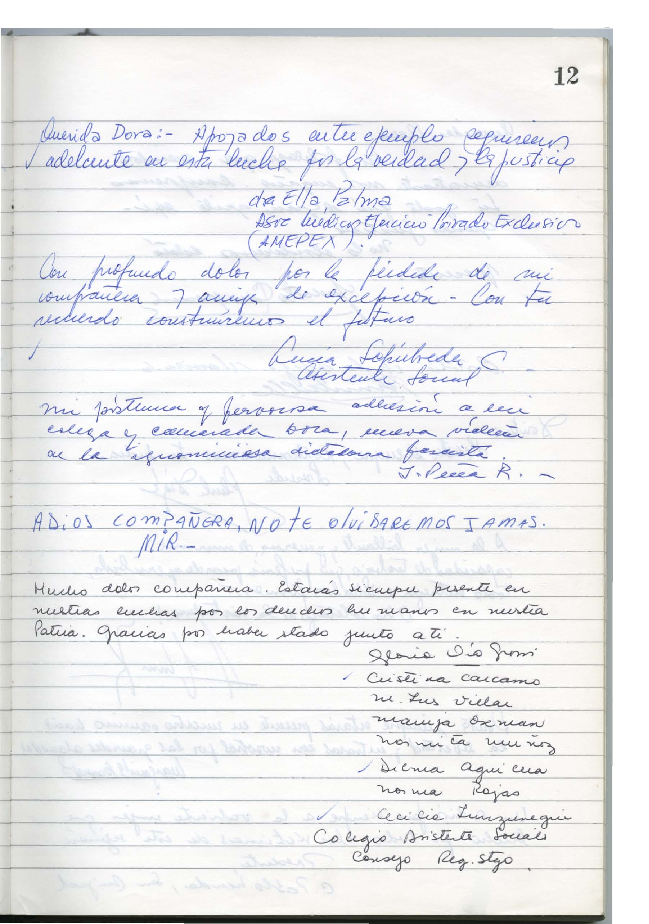 12
Querida Dora:- Apoyados en tu ejemplo seguiremos
adelante en esta lucha por la verdad y la justicia
dra Ella Palma
Asoc Médicos Ejercicio Privado Exclusivo
(AMEPEX).
Con profundo dolor por la pérdida de mi
compañera y amiga de excepción - Con tu
recuerdo construiremos el futuro
Lucía Sepúlveda C.
Asistente Social
mi póstuma y fervorosa adhesión a mi
colega y camarada Dora, nueva víctima
de la ignominiosa dictadura fascista.
J. Peña R. -
ADIOS COMPAÑERA, NO TE OLVIDAREMOS JAMAS.
MIR.-
Mucho dolor compañera. Estarás siempre presente en
nuestras luchas por los derechos humanos en nuestra
Patria. Gracias por haber estado junto a ti.
Gloria
Cristina Carcamo
M. Luz Villar
Maruja Oxman
Normita Muñoz
Dicma Aguilera
Norma Rojas
Cecilia
Colegio Asistente Sociales
Consejo Reg. Stgo.